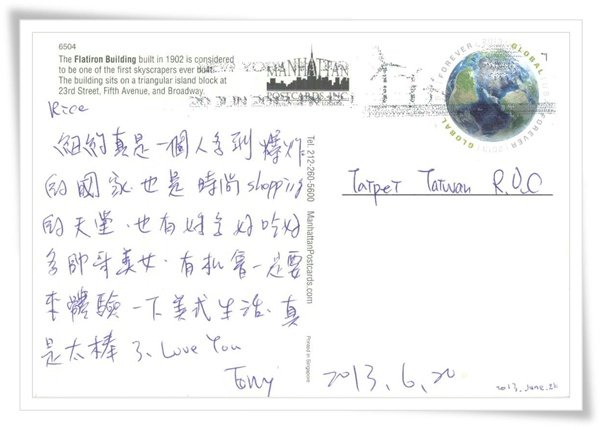 6504
The Flatiron Building built in 1902 is considered
to be one of the first skyscrapers ever built.
The building sits on a triangular island block at
23rd Street, Fifth Avenue, and Broadway.
MANHATTAN
POSTCARDS INC
FOREVER
GLOBAL
GLOBAL FOREVER 2013
Rice
紐約真是一個人多到爆炸
的國家也是時尚shopping
的天堂,也有好多好吃好
多帥哥美女,有機會一定要
來體驗一下美式生活、真
是太棒了、Love You
Tony
2013.6.20
Tel: 212-260-5600 ManhattanPostcards.com
Printed in Singapore
Taipei Taiwan R.O.C
2013.June.26